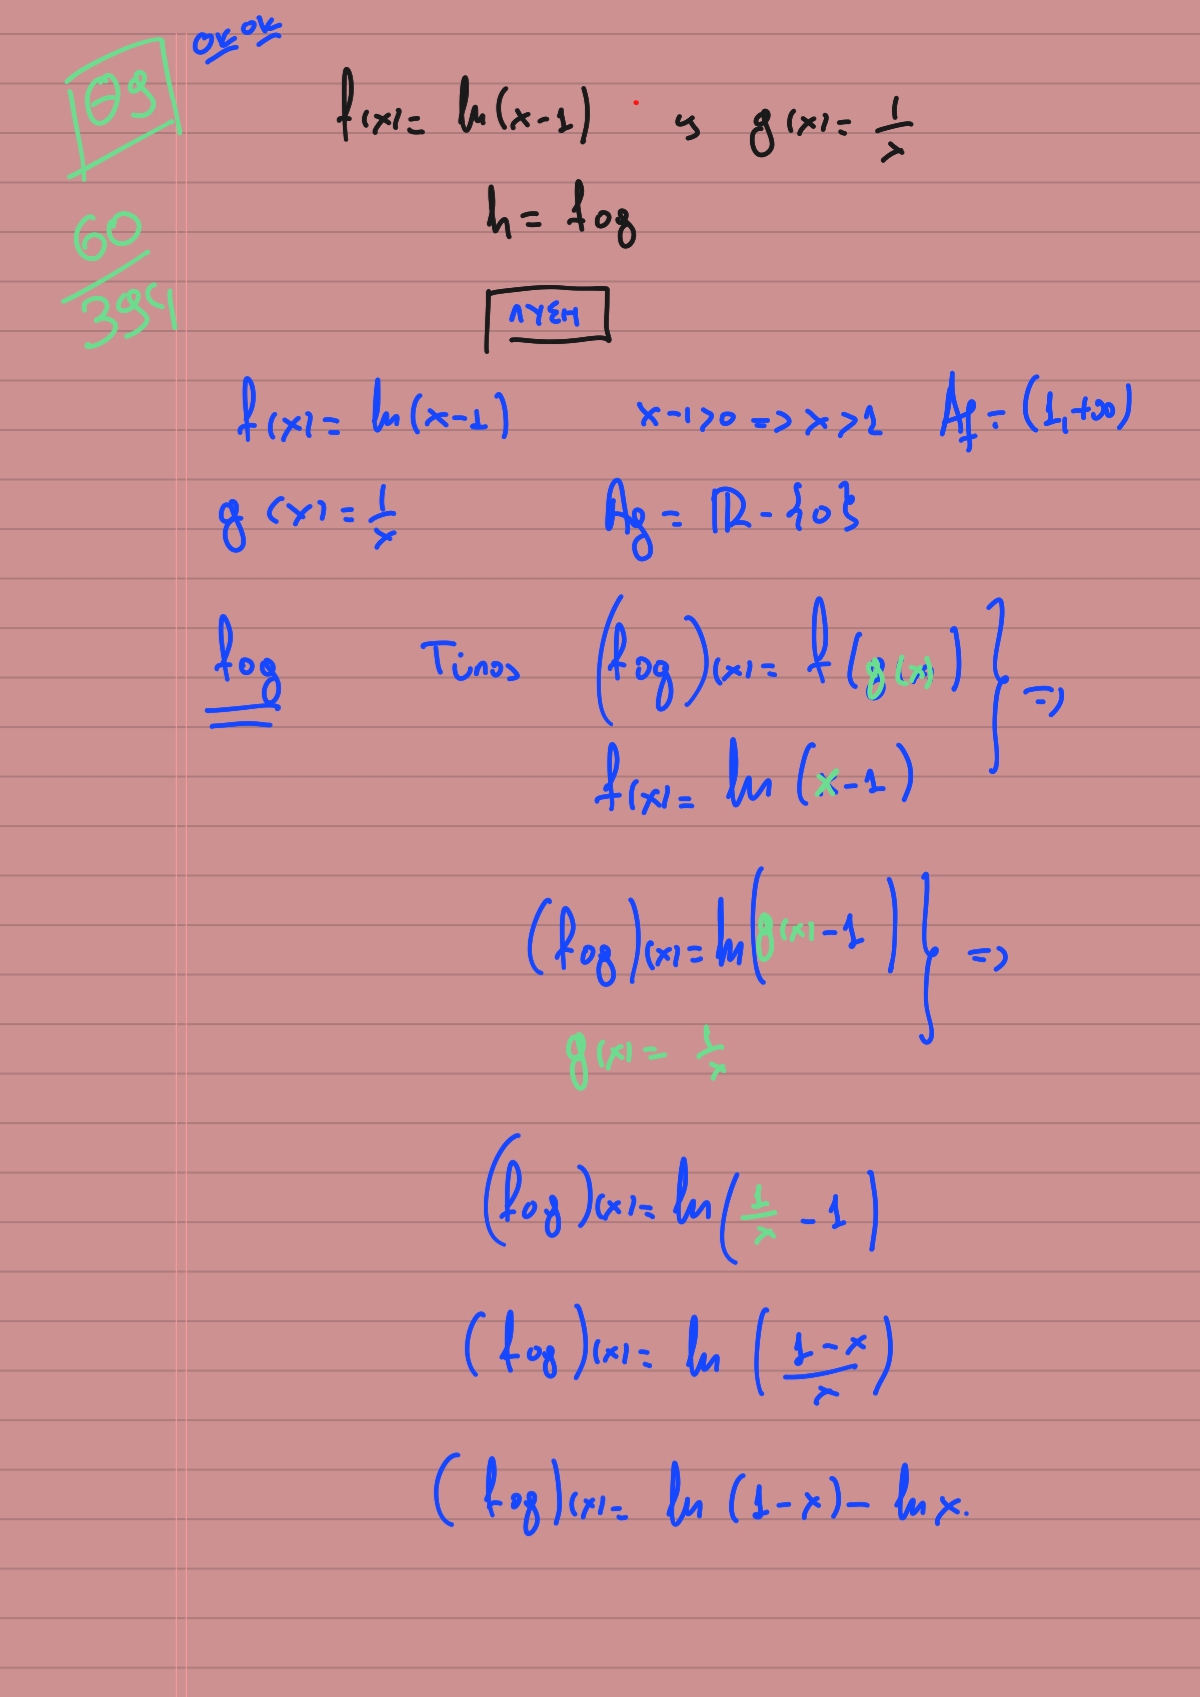 ok ok
Θ9
60/394
f(x) = ln(x-1) , g(x) = 1/x
h = fog
ΛΥΣΗ
f(x) = ln(x-1) x-1>0 => x>1 Af = (1,+∞)
g(x) = 1/x Ag = ℝ-{0}
fog Τύπος (fog)(x) = f(g(x)) } =>
f(x) = ln(x-1)
(fog)(x) = ln(g(x)-1) } =>
g(x) = 1/x
(fog)(x) = ln(1/x - 1)
(fog)(x) = ln((1-x)/x)
(fog)(x) = ln(1-x) - lnx.